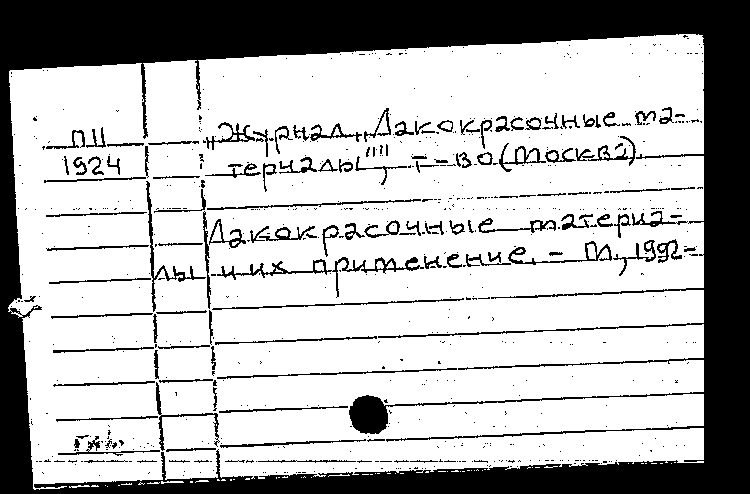 П11
1924
„Журнал „Лакокрасочные ма-
териалы"", т-во (Москва).
Лакокрасочные материа-
лы и их применение. – М., 1992-